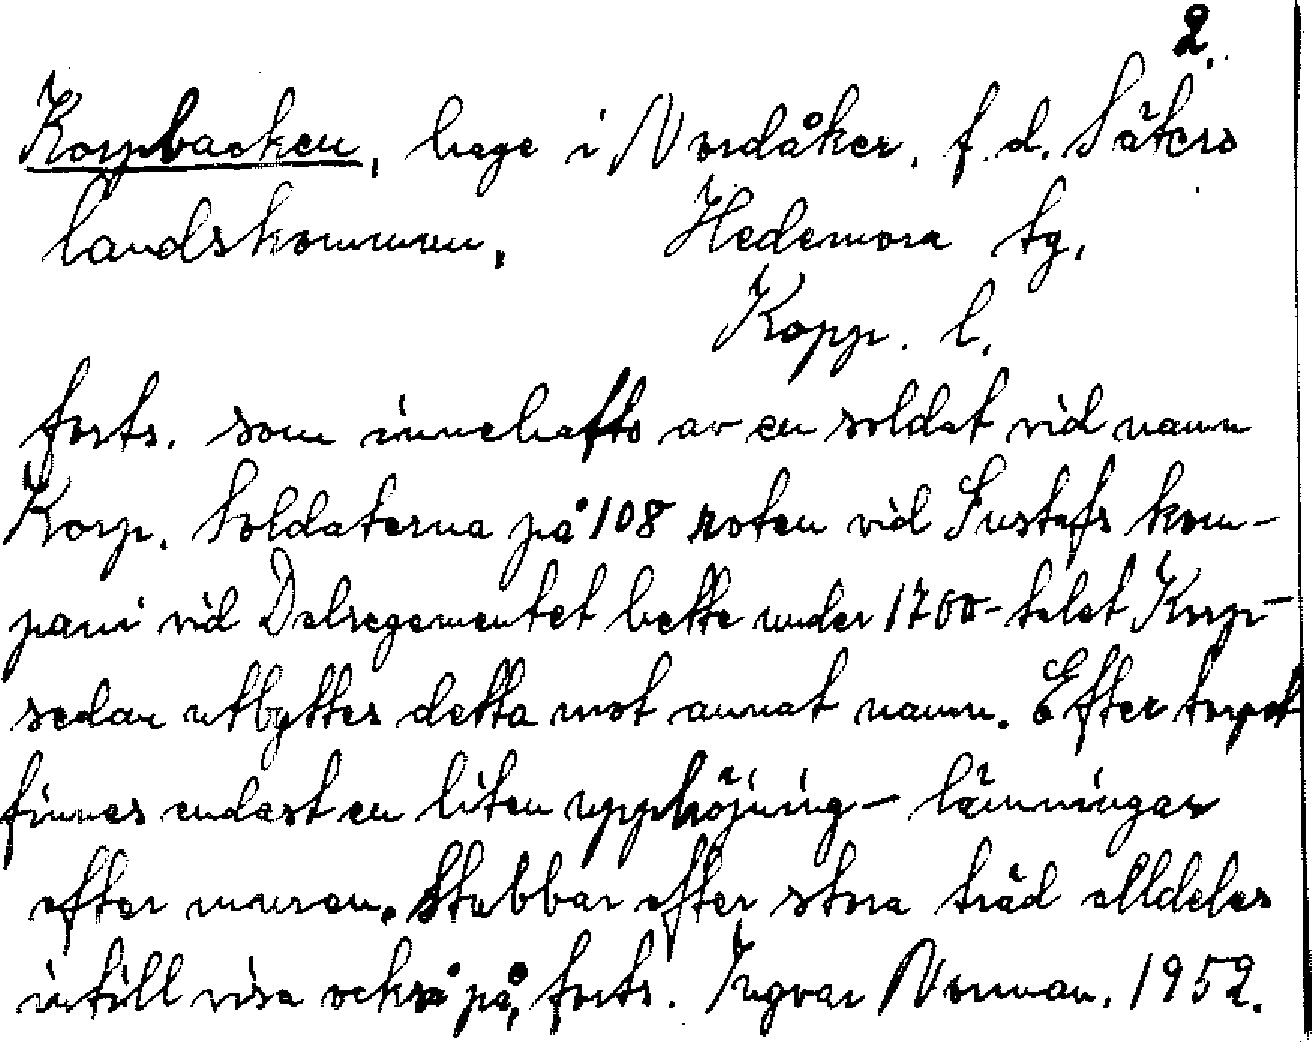 2.
Korpbacken, hage i Nordåker. f.d. Säters
landskommun. Hedemora tg.
Kopp. l.
forts. som innehafts av en soldat vid namn
Korp. Soldaterna på 108 roten vid Gustafs kom-
pani vid Dalregementet hette under 1700-talet Korp-
sedan utbyttes detta mot annat namn. Efter torpet
finnes endast en liten upphöjning - lämningar
efter muren. Stubbar efter stora träd alldeles
intill visa också på, forts. Ingvar Norman. 1952.